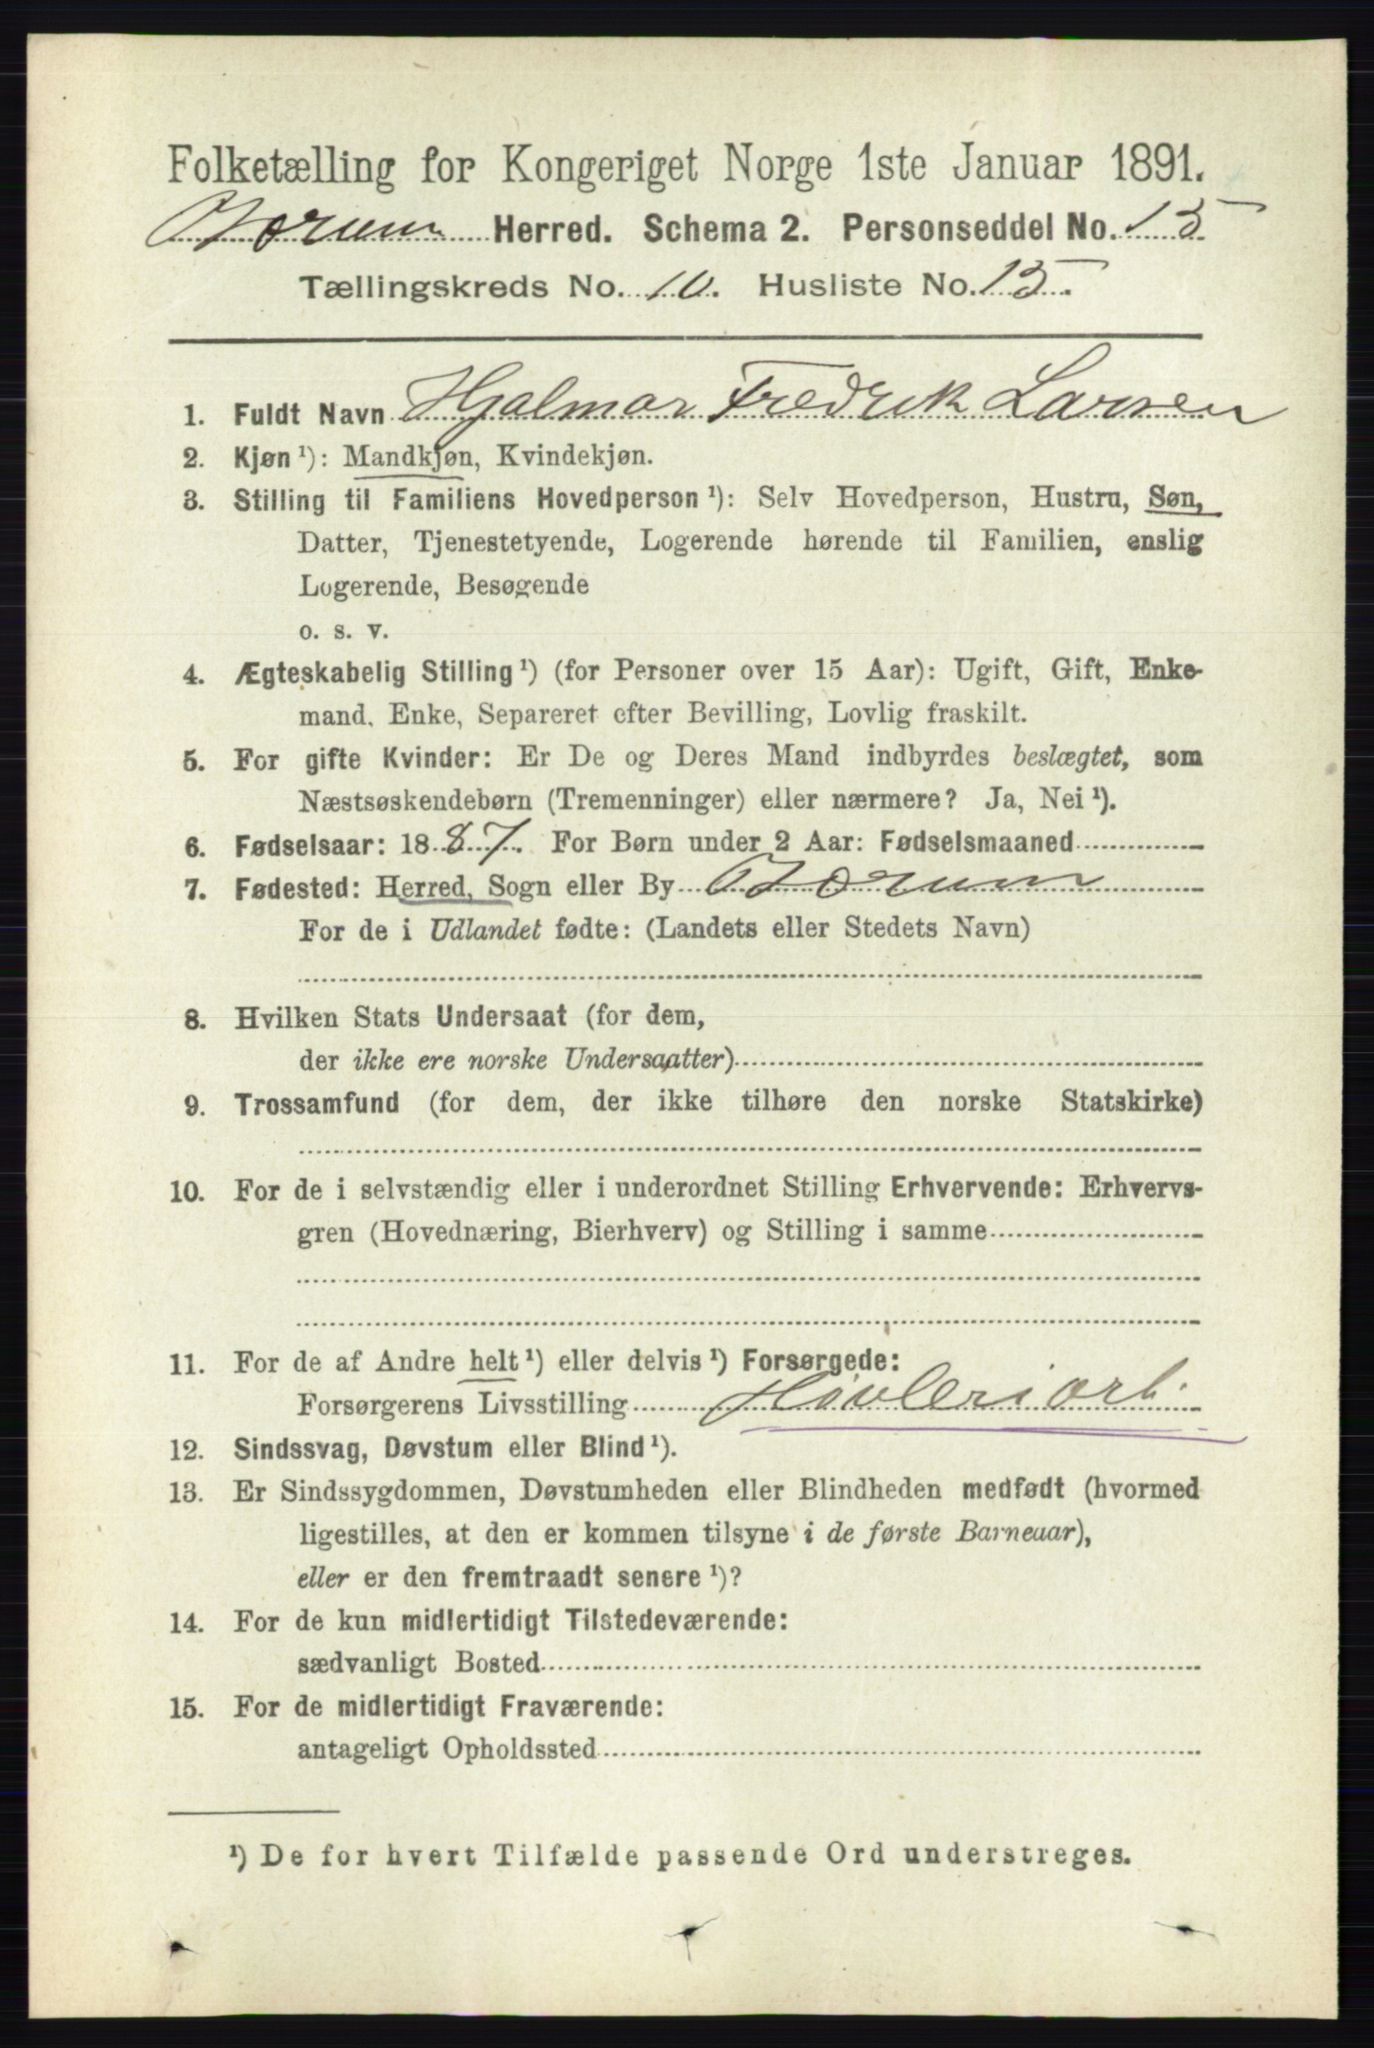 Folketælling for Kongeriget Norge 1ste Januar 1891.
Borum Herred. Schema 2. Personseddel No. 15
Tællingskreds No. 10. Husliste No. 15.
1. Fuldt Navn Hjalmar Fredrik Larsen
2. Kjøn ¹): Mandkjøn, Kvindekjøn.
3. Stilling til Familiens Hovedperson ¹): Selv Hovedperson, Hustru, Søn,
Datter, Tjenestetyende, Logerende hørende til Familien, enslig
Logerende, Besøgende
o. s. v.
4. Ægteskabelig Stilling ¹) (for Personer over 15 Aar): Ugift, Gift, Enke-
mand, Enke, Separeret efter Bevilling, Lovlig fraskilt.
5. For gifte Kvinder: Er De og Deres Mand indbyrdes beslægtet, som
Næstsøskendebørn (Tremenninger) eller nærmere? Ja, Nei ¹).
6. Fødselsaar: 1887. For Børn under 2 Aar: Fødselsmaaned
7. Fødested: Herred, Sogn eller By Borum
For de i Udlandet fødte: (Landets eller Stedets Navn)
8. Hvilken Stats Undersaat (for dem,
der ikke ere norske Undersaatter)
9. Trossamfund (for dem, der ikke tilhøre den norske Statskirke)
10. For de i selvstændig eller i underordnet Stilling Erhvervende: Erhvervs-
gren (Hovednæring, Bierhverv) og Stilling i samme
11. For de af Andre helt ¹) eller delvis ¹) Forsørgede:
Forsørgerens Livsstilling Høvleriarb.
12. Sindssvag, Døvstum eller Blind ¹).
13. Er Sindssygdommen, Døvstumheden eller Blindheden medfødt (hvormed
ligestilles, at den er kommen tilsyne i de første Barneaar),
eller er den fremtraadt senere ¹)?
14. For de kun midlertidigt Tilstedeværende:
sædvanligt Bosted
15. For de midlertidigt Fraværende:
antageligt Opholdssted
¹) De for hvert Tilfælde passende Ord understreges.